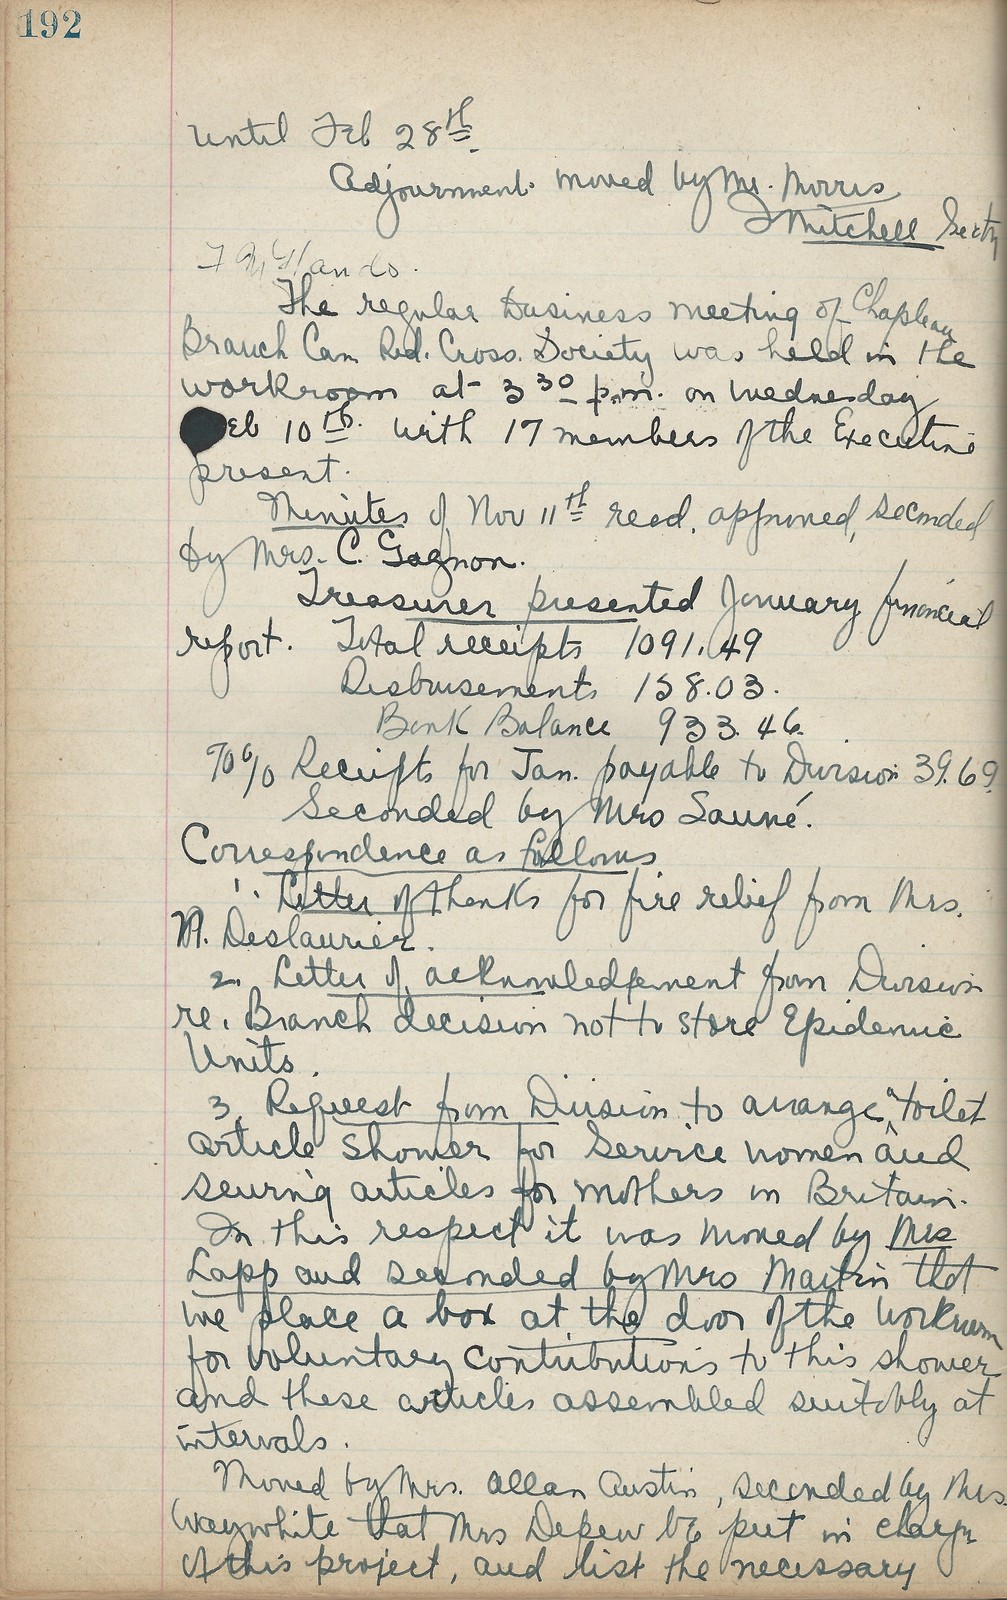 192
until Feb 28th.
Adjournment moved by Mr. Morris
Mitchell Secty
The regular business meeting of Chapleau
Branch Can Red. Cross. Society was held in the
workroom at 3 30 p.m. on Wednesday
Feb 10th. with 17 members of the Executive
present.
Minutes of Nov 11th read, approved, seconded
by Mrs. C. Gagnon.
Treasurer presented January financial
report. Total receipts 1091.49
Disbursements 158.03.
Bank Balance 933.46.
70% Receipts for Jan. payable to Division 39.69
Seconded by Mrs Sauné.
Correspondence as follows
1. Letter of thanks for fire relief from Mrs.
M. Deslaurier.
2. Letter of acknowledgement from Division
re. Branch decision not to store Epidemic
Units.
3. Request from Division to arrange "toilet
article shower for Service women" and
sewing articles for mothers in Britain.
In this respect it was moved by Mrs
Lapp and seconded by Mrs Martin that
we place a box at the door of the workroom
for voluntary contributions to this shower
and these articles assembled suitably at
intervals.
Moved by Mrs. Allan Austin, seconded by Mrs.
Waywhite that Mrs Depew be put in charge
of this project, and list the necessary